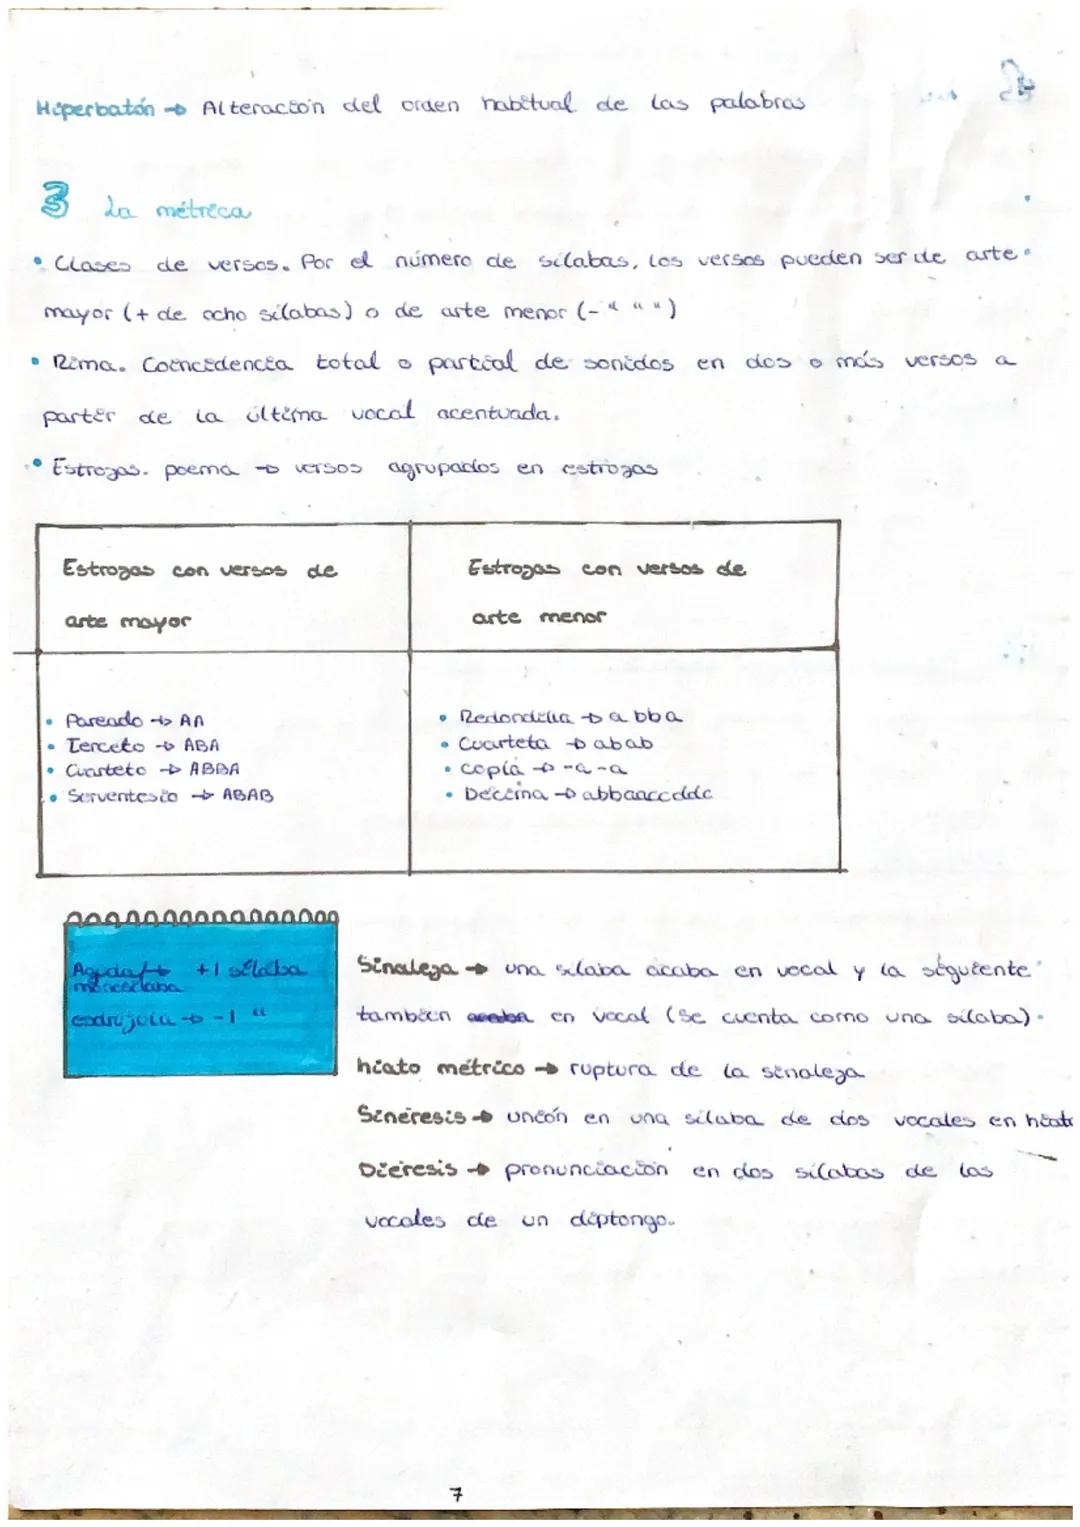 Hiperbatón → Alteración del orden habitual de las palabras
3 La métrica
• Clases de versos. Por el número de sílabas, los versos pueden ser de arte
mayor (+ de ocho sílabas) o de arte menor (- " " ")
• Rima. Coincidencia total o partcial de sonidos en dos o más versos a
partir de la última vocal acentuada.
• Estrofas. poema → versos agrupados en estrofas
Estrofas con versos de
arte mayor
Estrofas con versos de
arte menor
• Pareado → AA
• Terceto → ABA
• Cuarteto → ABBA
• Serventesio → ABAB
• Redondilla → abba
• Cuarteta → abab
• copla → -a-a
• Décima → abbaaccddc
Aguda/ → +1 sílaba
monosílaba
esdrújula → -1 "
Sinalefa → una sílaba acaba en vocal y la siguiente
también en vocal (se cuenta como una sílaba).
hiato métrico → ruptura de la sinalefa
Sinéresis → unión en una sílaba de dos vocales en hiato
Diéresis → pronunciación en dos sílabas de las
vocales de un diptongo.
7